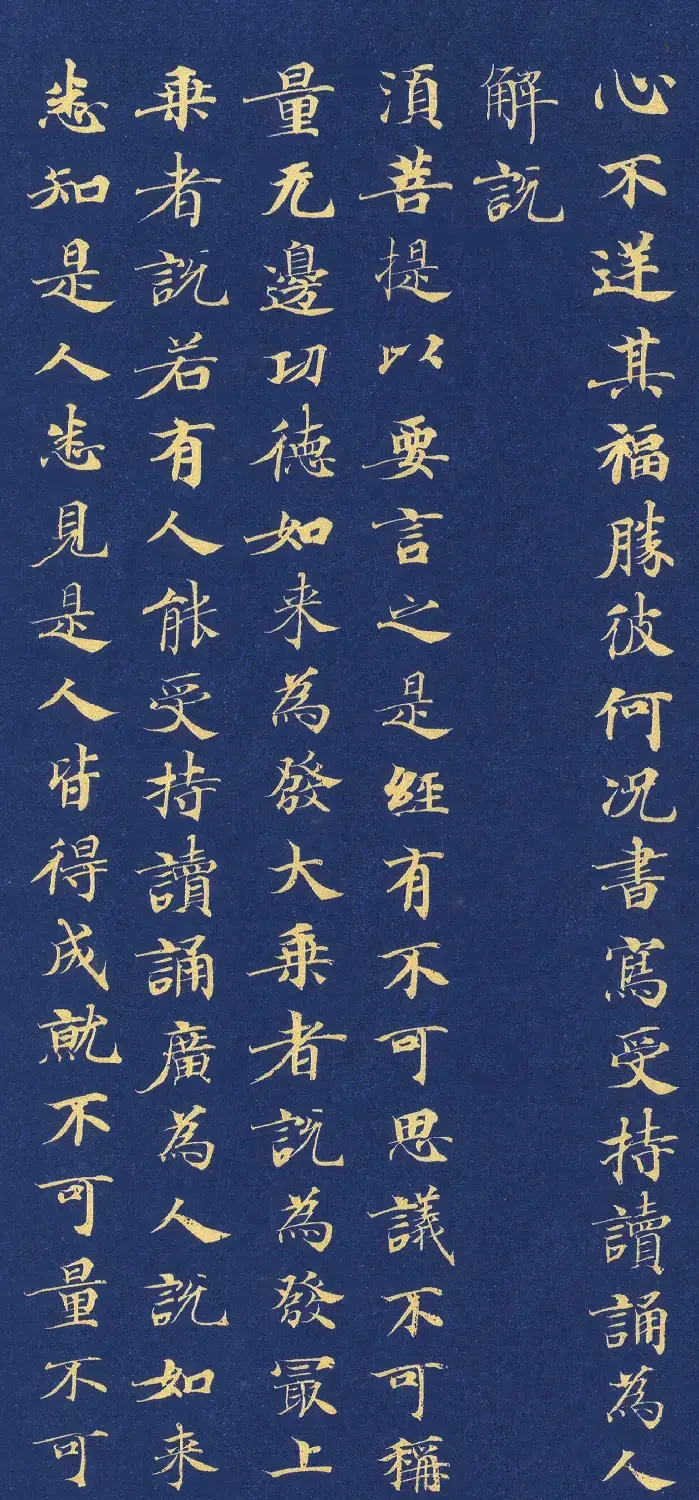 心不逆其福勝彼何况書寫受持讀誦為人
解説
須菩提以要言之是經有不可思議不可稱
量无邊功德如来為發大乗者説為發冣上
乗者説若有人能受持讀誦廣為人説如来
悉知是人悉見是人皆得成就不可量不可